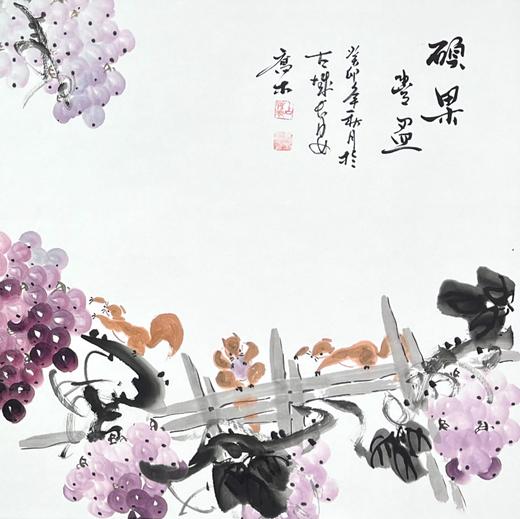 硕果
盈
癸卯年秋月於
古城长安
喬木